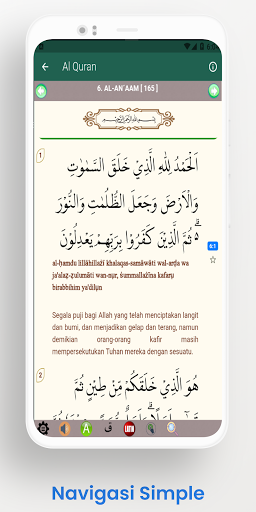 6:0
Al Quran
6. AL-AN`AAM [ 165 ]
بِسْمِ اللّٰهِ الرَّحْمٰنِ الرَّحِيْمِ
1
اَلْحَمْدُ لِلّٰهِ الَّذِيْ خَلَقَ السَّمٰوٰتِ
وَالْاَرْضَ وَجَعَلَ الظُّلُمٰتِ وَالنُّوْرَ
ەۗ ثُمَّ الَّذِيْنَ كَفَرُوْا بِرَبِّهِمْ يَعْدِلُوْنَ
6:1
al-ḥamdu lillāhillażī khalaqas-samāwāti wal-arḍa wa
ja'alaẓ-ẓulumāti wan-nụr, ṡummallażīna kafarụ
birabbihim ya'dilụn
Segala puji bagi Allah yang telah menciptakan langit
dan bumi, dan menjadikan gelap dan terang, namun
demikian orang-orang kafir masih
mempersekutukan Tuhan mereka dengan sesuatu.
2
هُوَ الَّذِيْ خَلَقَكُمْ مِّنْ طِيْنٍ ثُمَّ
Navigasi Simple